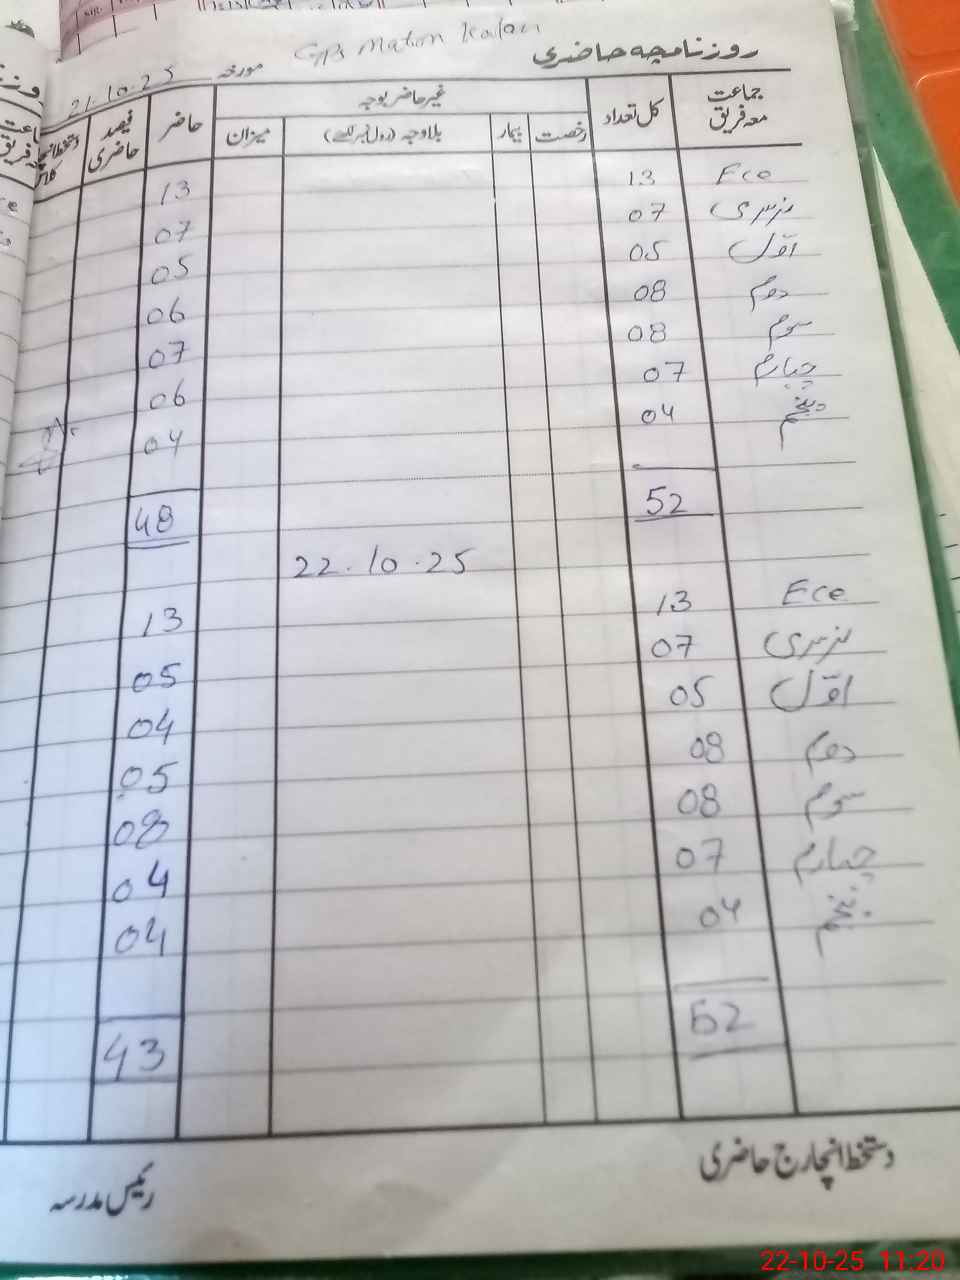 GPS Mation Kalan
روزنامچہ حاضری
مورخہ 21.10.25
جماعت معہ فریق کل تعداد غیر حاضر بوجہ حاضر فیصد حاضری
رخصت بیمار بلاوجہ (رول نمبر لکھئے) میزان
Ece 13 13
نرسری 07 07
اوّل 05 05
دوم 08 06
سوم 08 07
چہارم 07 06
پنجم 04 04
52 48
22.10.25
Ece 13 13
نرسری 07 05
اوّل 05 04
دوم 08 05
سوم 08 08
چہارم 07 04
پنجم 04 04
52 43
دستخط انچارج حاضری
رئیس مدرسہ
22-10-25 11:20